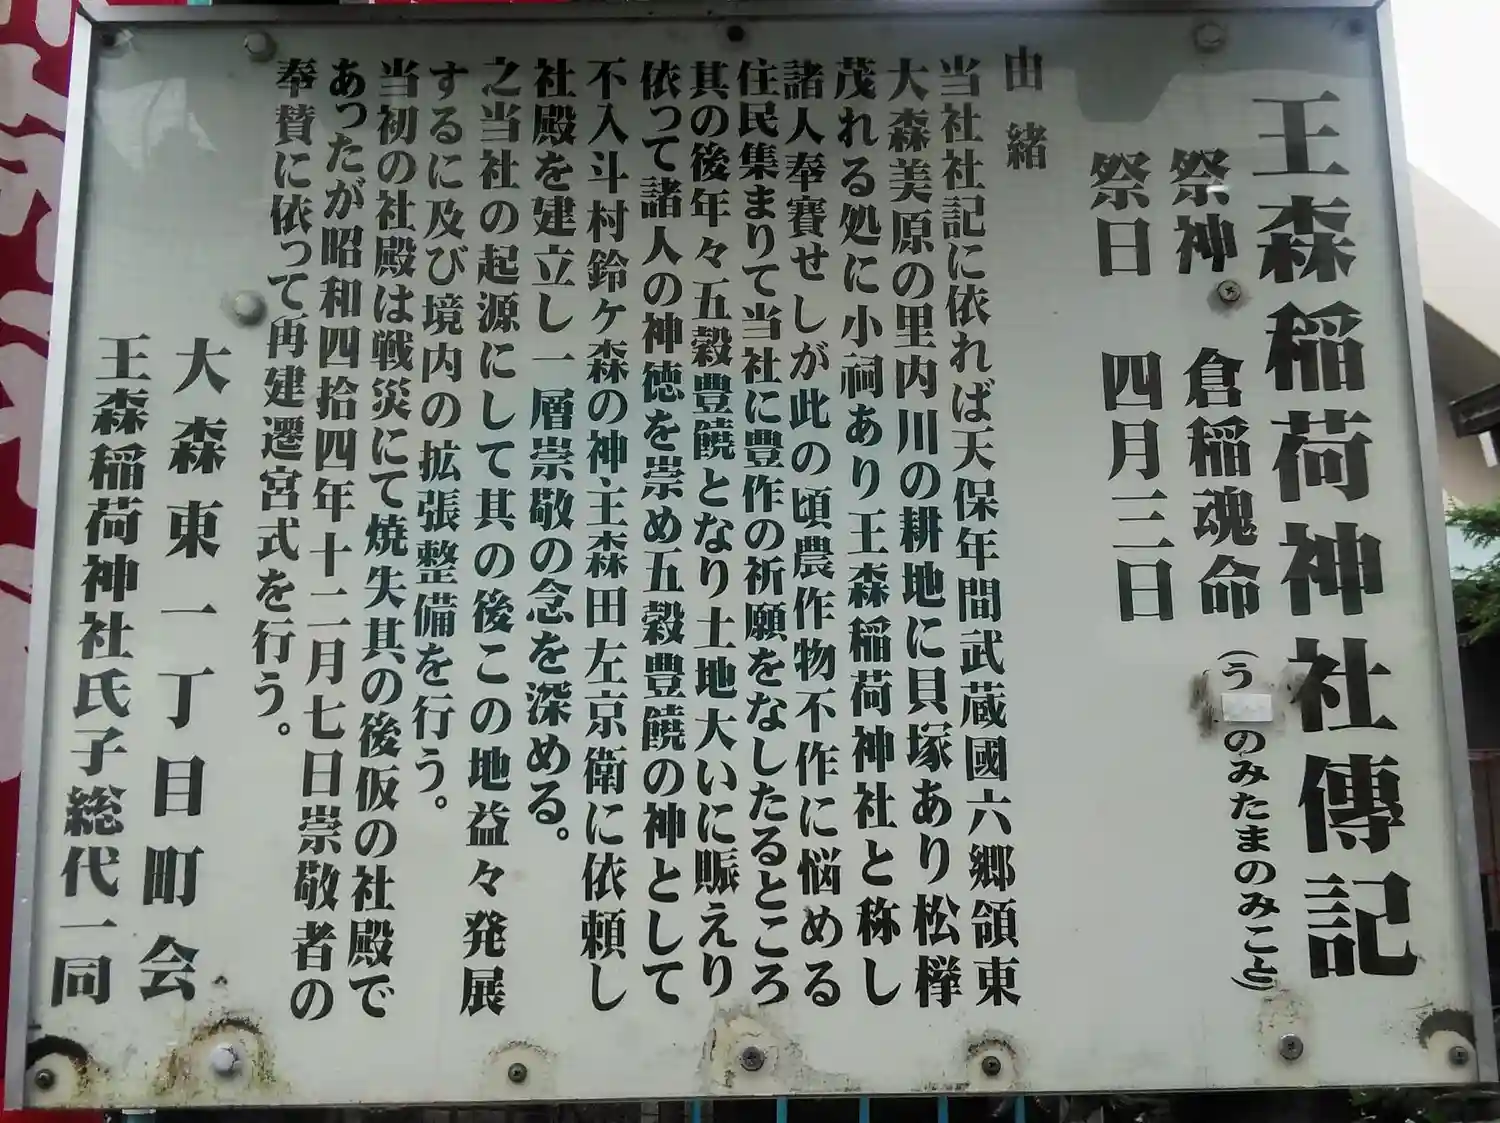 王森稲荷神社傳記
祭神 倉稲魂命(う のみたまのみこと)
祭日 四月三日
由緒
当社社記に依れば天保年間武蔵國六郷領東
大森美原の里内川の耕地に貝塚あり松欅
茂れる処に小祠あり王森稲荷神社と称し
諸人奉賽せしが此の頃農作物不作に悩める
住民集まりて当社に豊作の祈願をなしたるところ
其の後年々五穀豊饒となり土地大いに賑えり
依って諸人の神徳を崇め五穀豊饒の神として
不入斗村鈴ケ森の神主森田左京衛に依頼し
社殿を建立し一層崇敬の念を深める。
之当社の起源にして其の後この地益々発展
するに及び境内の拡張整備を行う。
当初の社殿は戦災にて焼失其の後仮の社殿で
あったが昭和四拾四年十二月七日崇敬者の
奉賛に依って再建遷宮式を行う。
大森東一丁目町会
王森稲荷神社氏子総代一同